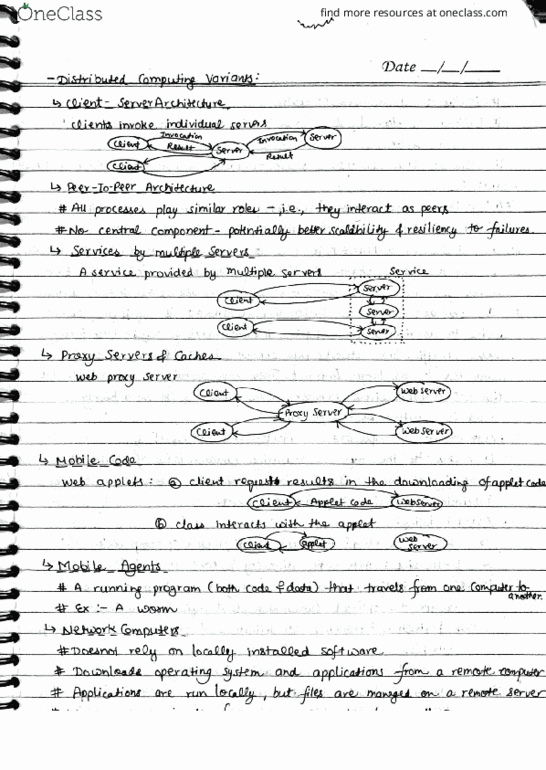 OneClass
find more resources at oneclass.com
Date __/__/____
- Distributed Computing Variants:
↳ Client-Server Architecture
Clients invoke individual servers
Client Invocation Result Server Invocation Result Server
Client
↳ Peer-To-Peer Architecture
# All processes play similar roles - i.e., they interact as peers
# No central component - potentially better scalability & resiliency to failures.
↳ Services by multiple servers
A service provided by multiple servers Service
Client Server
Server
Client Server
↳ Proxy Servers & Caches
Web proxy server
Client Web server
Proxy Server
Client Web Server
↳ Mobile Code
Web applets: ⓐ client request results in the downloading of applet code
Client Applet code Webserver
ⓑ class interacts with the applet
Client Applet Web server
↳ Mobile Agents
# A running program (both code & data) that travels from one computer to another.
# Ex :- A worm
↳ Network Computers
# Doesnot rely on locally installed software
# Downloads operating system and applications from a remote computer
# Applications are run locally, but files are managed on a remote server